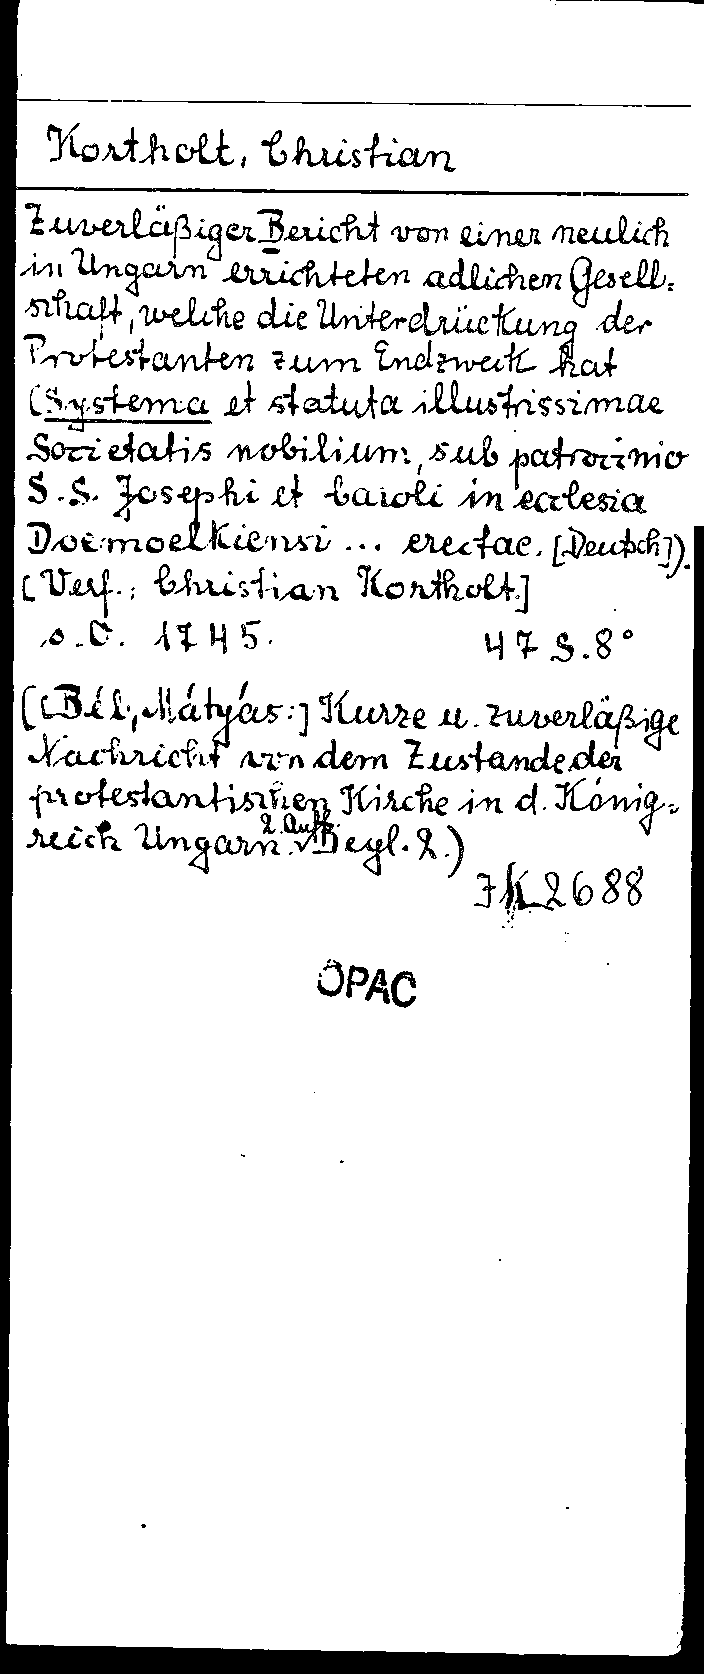 Kortholt, Christian
Zuverläßiger Bericht von einer neulich
in Ungarn errichteten adlichen Gesell=
schaft, welche die Unterdrückung der
Protestanten zum Endzweck hat
(Systema et statuta illustrissimae
Societatis nobilium, sub patrocinio
S.S. Josephi et Caroli in ecclesia
Doemoelkiensi ... erectae. [Deutsch]).
[Verf.: Christian Kortholt.]
o.O. 1745. 47 S. 8°
([Bél, Mátyás:] Kurze u. zuverläßige
Nachricht von dem Zustande der
protestantischen Kirche in d. König=
reich Ungarn. 2. Aufl. Beyl. 2.)
2688
OPAC